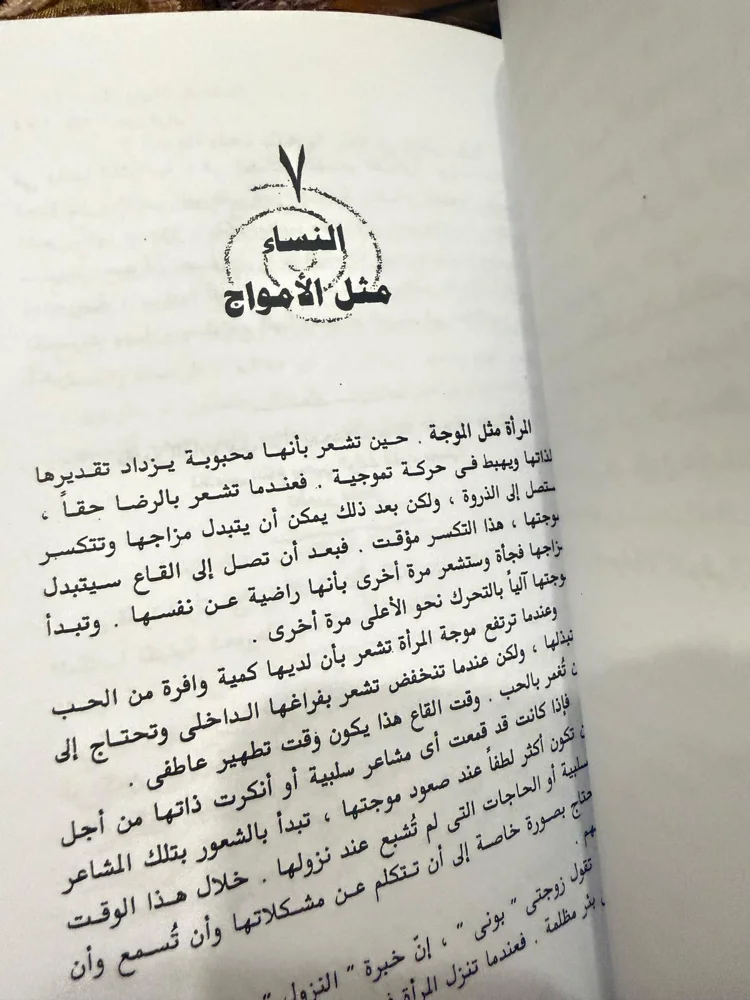 ٧
النساء
مثل الأمواج
المرأة مثل الموجة . حين تشعر بأنها محبوبة يـزداد تقـديرها
لذاتها ويهبط فى حركة تموجية . فعندما تشعر بالرضا حقـاً ،
ستصل إلى الذروة ، ولكن بعد ذلك يمكن أن يتبدل مزاجها وتتكسر
موجتها ، هذا التكسر مؤقت . فبعـد أن تصل إلى القاع سـيتبدل
مزاجها فجأة وستشعر مرة أخرى بأنها راضية عن نفسـها . وتبـدأ
موجتها آلياً بالتحرك نحو الأعلى مرة أخرى .
وعندما ترتفع موجة المرأة تشعر بأن لديها كمية وافرة من الحـب
تبذلها ، ولكن عندما تنخفض تشعر بفراغها الـداخلى وتحتـاج إلى
أن تُغمر بالحب . وقت القاع هذا يكون وَقت تطهير عاطفى .
فإذا كانت قد قمعت أى مشاعر سلبية أو أنكرت ذاتها من أجل
أن تكون أكثر لطفاً عند صعود موجتها ، تبدأ بالشعور بتلك المشاعر
السلبية أو الحاجات التى لم تُشبع عند نزولها . خلال هذا الوقت
تحتاج بصورة خاصة إلى أن تـتكلم عن مشـكلاتها وأن تُسـمع وأن
تقول زوجتى " بونى " ، إنّ خبرة " النزول "
بئر مظلمة . فعندما تنزل المرأة